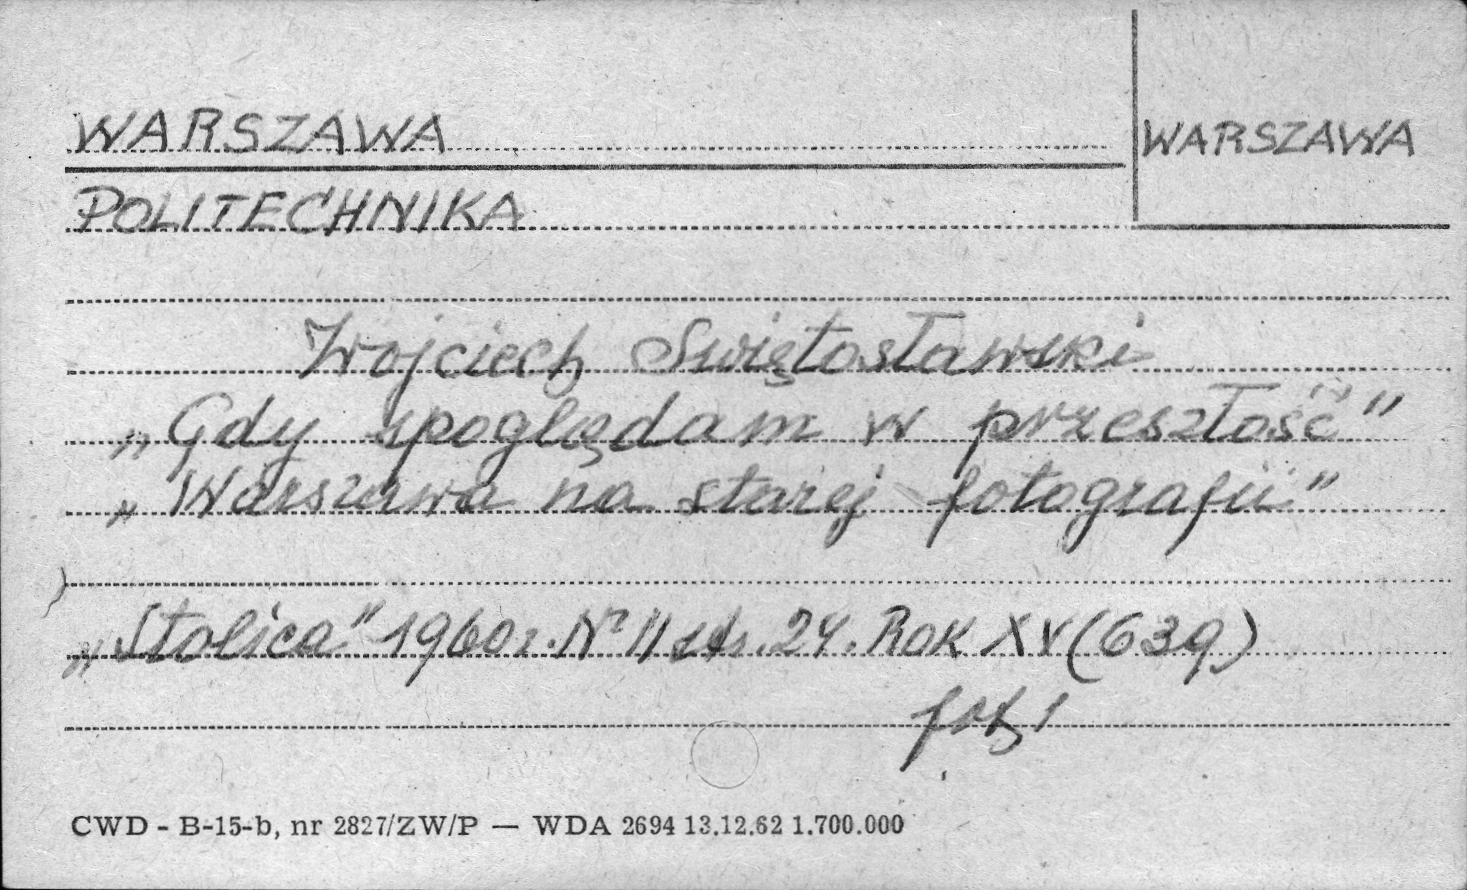 WARSZAWA
WARSZAWA
POLITECHNIKA
Wojciech Swiętosławski
„Gdy spoględam w przeszłość"
„Warszawa na starej fotografii"
„Stolica" 1960r. Nr 11 str. 24. Rok XV (639)
fot. 1
CWD - B-15-b, nr 2827/ZW/P — WDA 2694 13.12.62 1.700.000